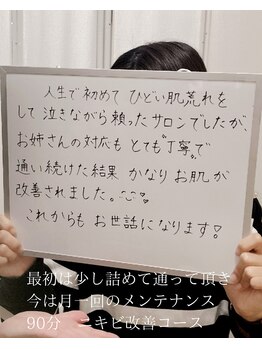 人生で初めて ひどい肌荒れを
して 泣きながら頼ったサロンでしたが、
お姉さんの対応も とても"丁寧"で
通い続けた結果 かなり お肌が
改善されました。
これからも お世話になります!
最初は少し詰めて通って頂き
今は月一回のメンテナンス
90分 ニキビ改善コース